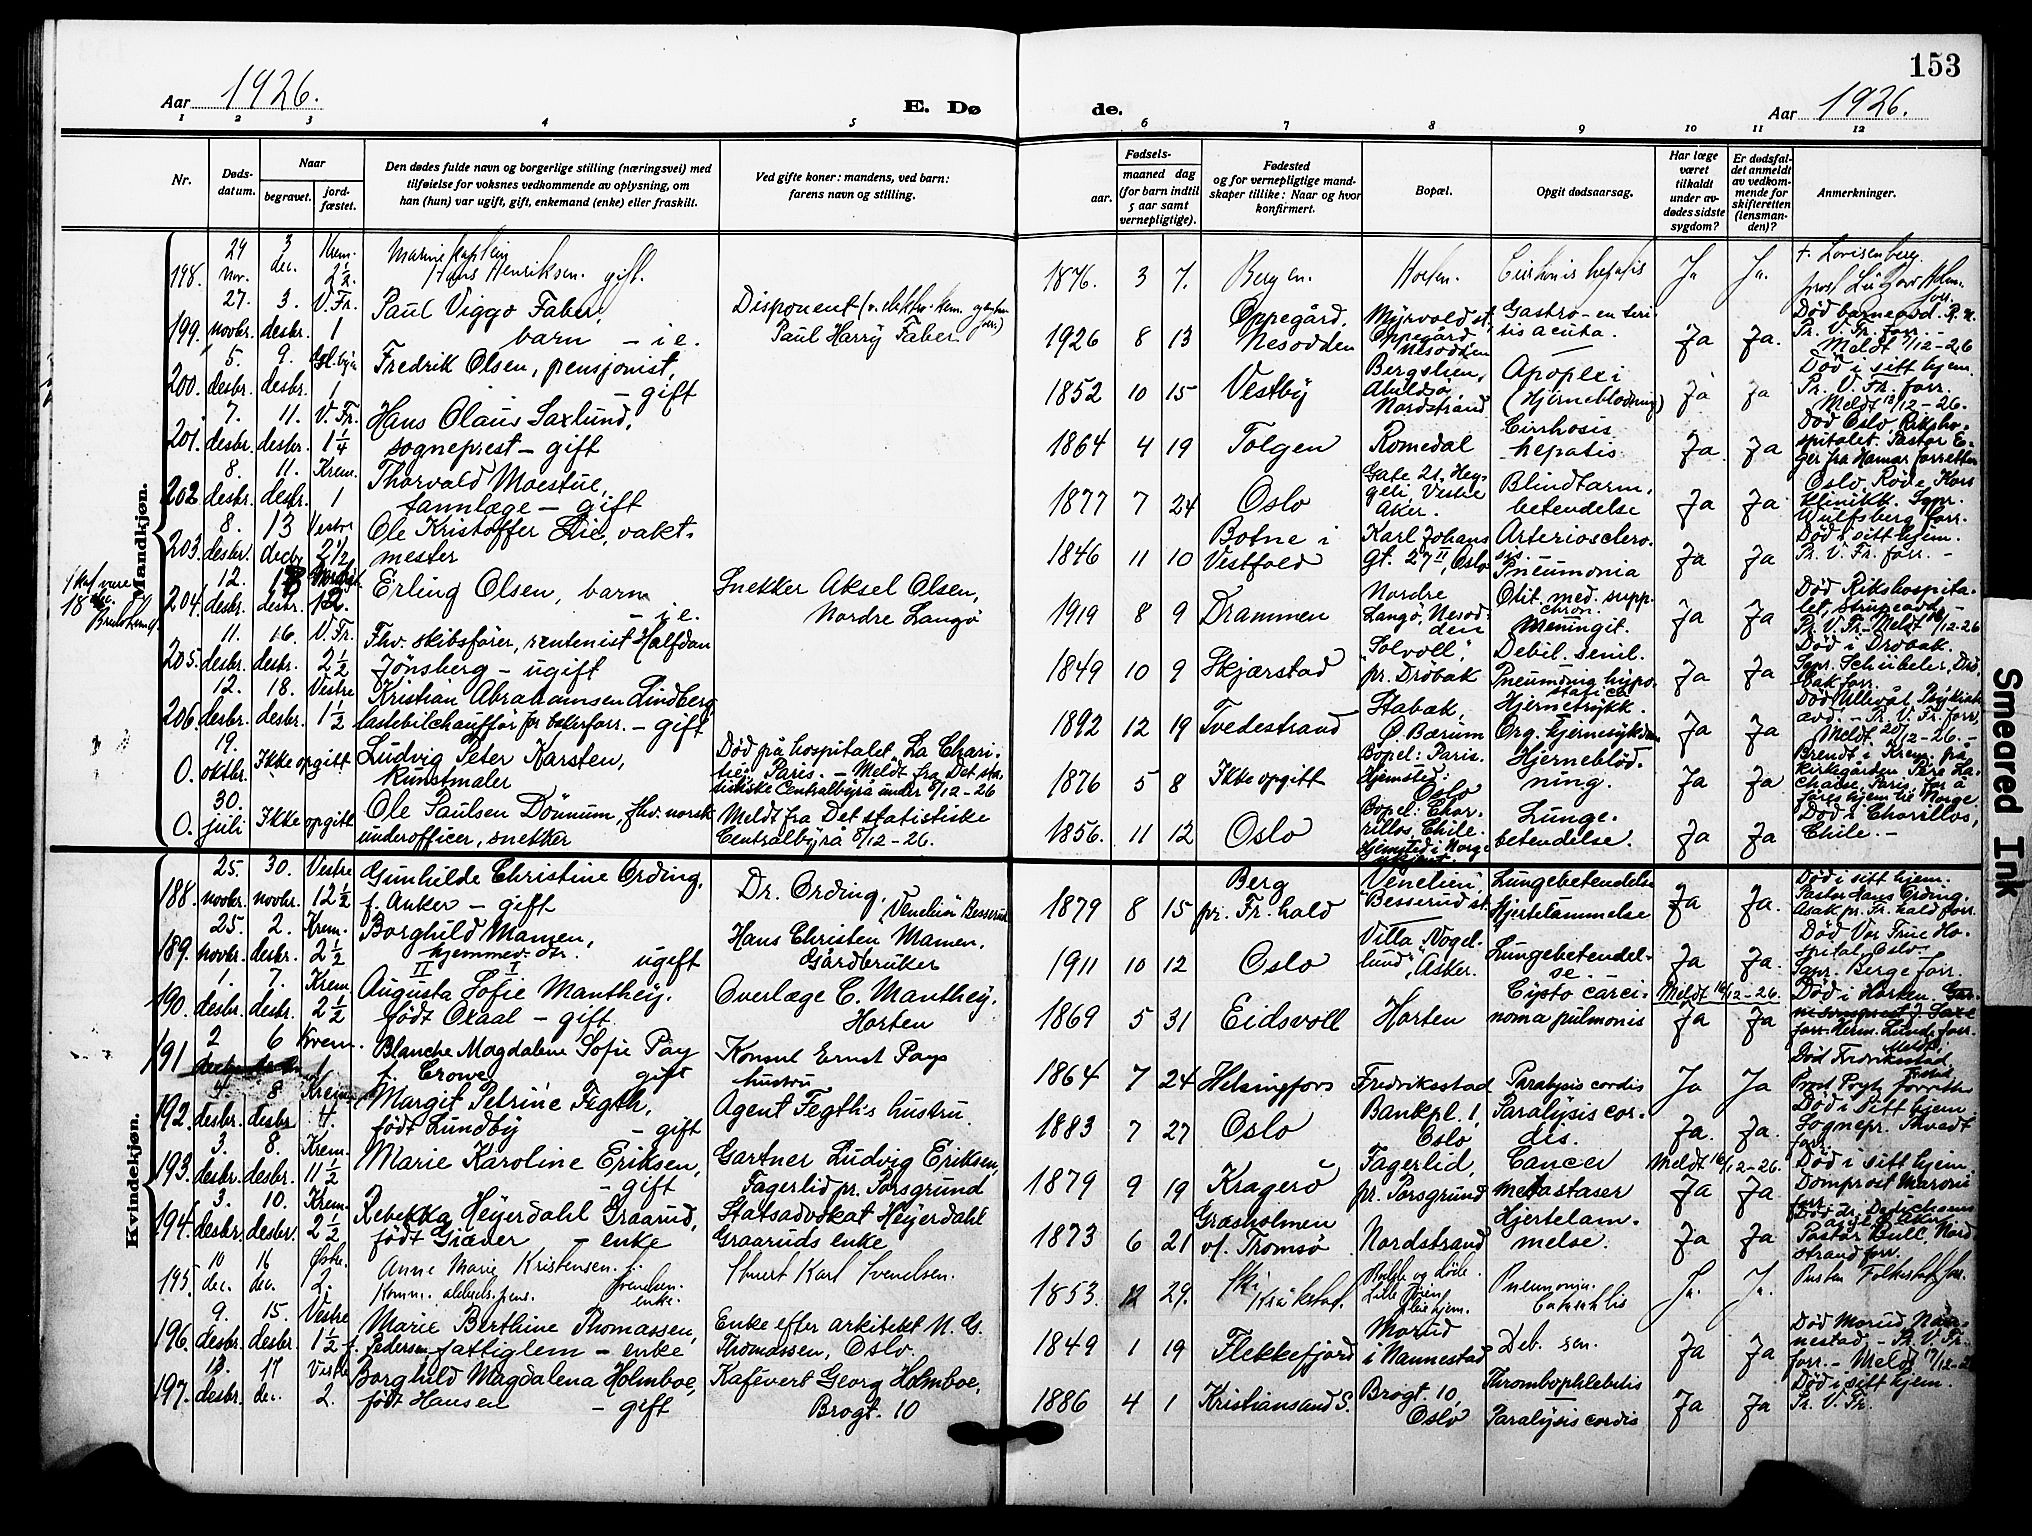 153
Aar 1926.
E. Dø de.
Aar 1926.
1 2 3 4 5 6 7 8 9 10 11 12
Nr.
Døds-
datum.
Naar
begravet.
jord-
fæstet.
Den dødes fulde navn og borgerlige stilling (næringsvei) med
tilføielse for voksnes vedkommende av oplysning, om
han (hun) var ugift, gift, enkemand (enke) eller fraskilt.
Ved gifte koner: mandens, ved barn:
farens navn og stilling.
Fødsels-
aar.
maaned dag
(for barn indtil
5 aar samt
vernepligtige).
Fødested
og for vernepligtige mand-
skaper tillike: Naar og hvor
konfirmert.
Bopæl.
Opgit dødsaarsag.
Har læge
været
tilkaldt
under av-
dødes sidste
sygdom?
Er dødsfal-
det anmeldt
av vedkom-
mende for
skifteretten
(lensman-
den)?
Anmerkninger.
Mandkjøn.
198. 29 nov. 3 dec. Krem. 2½ Marinekaptein Hans Henriksen. gift. 1876. 3 7. Bergen. Horten. Cirrhosis hepatis Ja Ja. † Lovisenberg.
199. 27. novbr. 3. desbr. V. Fr. 1 Paul Viggo Faber, barn – i e. Disponent Paul Harry Faber. 1926 8 13 Oppegård, Nesodden Myrvold st. Oppegård Nesodden Gastro-enteritis acuta. Ja Ja. Pr. V. Fr. forr. – Meldt 7/12–26
200. 5. desbr. 9. desbr. 1 Fredrik Olsen, pensjonist, – gift 1852 10 15 Vestby Bergslien, Abildsø, Nordstrand Apoplexi (Hjerneblødning) Ja Ja Død i sitt hjem. Pr. V. Fr. forr. Meldt 13/12–26.
201. 7. desbr. 11. desbr. V. Fr. 1¼ Hans Olaus Saxlund, sogneprest – gift 1864 4 19 Tolgen Romedal Cirrhosis hepatis Ja. Ja Død Oslo, Rikshospitalet. Pastor Eger fra Hamar forrettet
202 8. desbr. 11. desbr. Krem. 1 Thorvald Moestue, tannlæge – gift 1877 7 24 Oslo Gate 21, Heggeli, Vestre Aker. Blindtarmbetendelse Ja Ja Oslo, Røde Kors Klinikk. Sgpr. Wulfsberg forr.
203. 8. desbr. 13 decbr. Vestre 2½ Ole Kristoffer Lie, vaktmester 1846 11 10 Botne i Vestfold Karl Johans gt. 27 II, Oslo Arteriosclerosis. Pneumonia Ja Ja Død i sitt hjem. Pr. V. Fr. forr. –
skal være 18 dec.
204. 12. desbr. desbr. 12. Erling Olsen, barn – i e. Snekker Aksel Olsen, Nordre Langø 1919 8 9 Drammen Nordre Langø, Nesodden Otit. med. supp. chron. Meningit. Ja Ja Død Rikshospitalet, strupeavd. – Pr. V. Fr. Meldt 16/12–26
205. 11. desbr. 16. desbr. V. Fr. 2½ Fhv. skibsfører, rentenist Halfdan Jønsberg – ugift 1849 10 9 Skjærstad "Solvoll", pr. Drøbak Debil. senil. Pneumonia hypostatica Ja Ja Død i Drøbak. Sgpr. Schübeler, Drøbak forr.
206. 12. desbr. 18. desbr. Vestre 1½ Kristian Abrahamsen Lindberg, lastebilchauffør for bakerforr. – gift 1892 12 19 Tvedestrand Stabæk, Ø. Bærum Hjernetrykk. Org. hjernesykdom Ja Ja Død Ullevål, Psykiatr. avd. – Pr. V. Fr. forr. Meldt 20/12–26. –
0. 19. oktbr. Ikke opgitt Ludvig Peter Karsten, Kunstmaler Død på hospitalet, La Charitié, Paris. – Meldt fra Det statistiske Centralbyrå under 8/12–26 1876 5 8 Ikke opgitt Bopel: Paris. Hjemsted: Oslo Hjerneblødning. Ja Ja Brendt i Krem. på kirkegården Père Lachaise, Paris, for å føres hjem til Norge.
0. 30. juli Ikke opgitt Ole Paulsen Dønnum, fhv. norsk underofficer, snekker Meldt fra Det statistiske Centralbyrå 8/12–26. 1856. 11 12 Oslo Bopel: Charrillos, Chile. Hjemsted i Norge Lungebetendelse. Ja Ja Død i Charillos, Chile. –
Kvindekjøn.
188. 25. novbr. 30. novbr. Vestre 12½ Gunhilde Christine Ording, f. Anker – gift Dr. Ording, "Venelien" Besserud 1879 8 15 Berg pr. Fr.hald "Venelien", Besserud st. Lungebetendelse Hjertelammelse Ja Ja. Død i sitt hjem. Pastor Hans Ording, Asak pr. Fr.hald forr.
189. 25. novbr. 2. desbr. Krem. 2½ Borghild Mamen, hjemmev. dtr. ugift Hans Christen Mamen, Gårdbruker 1911 10 12 Oslo Villa "Nogellund", Asker. Lungebetendelse. Ja Ja. Død Vor Frue Hospital, Oslo. Sgpr. Berge forr.
190. 1. desbr. 7. desbr. Krem. 2½ Augusta Sofie Manthey, født Oxaal – gift Overlæge C. Manthey, Horten 1869 5 31 Eidsvoll Horten Cysto carcinoma pulmonis Meldt 16/12–26. Ja Ja Død i Horten. Herm. Lunde forr.
191 2 6 Krem. 1 Blanche Magdalene Sofie Pay f. Crowe gift Konsul Ernst Pays hustru 1864 7 24 Helsingfors Fredriksstad Paralysis cordis Ja Ja Død Fredriksstad
192. 4. desbr. 8 desbr Krem 4. Margit Petrine Fegth, født Lundby – gift Agent Fegth's hustru. 1883 7 27 Oslo Bankpl. 1, Oslo Paralysis cordis. Ja. Ja. Død i sitt hjem. Sognepr. Skvadt forr.
193. 3. desbr. 8. desbr. Krem. 11½ Marie Karoline Eriksen, – gift Gartner Ludvig Eriksen, Fagerlid pr. Porsgrund 1879 9 19 Kragerø Fagerlid, pr. Porsgrund Cancer metastaser Meldt 16/12–26. Ja Ja Død i sitt hjem. Domprost Maroni forr.
194. 3. desbr. 10. desbr. Krem. 2½ Rebekka Heyerdahl Graarud, født Giæver – enke Statsadvokat Heyerdahl Graaruds enke 1873 6 21 Græsholmen v/ Tromsø Nordstrand Hjertelammelse. Ja Ja Pastor Bull, Nordstrand forr.
195. 10 dec. 16 dec. Østre. 2. Anne Marie Kristensen f. Svendsen. enke. Karl Svendsen. 1853. 12 29. Ski Kråkstad. Pneumonia. Ja. Ja.
196. 9. desbr. 15. desbr. Vestre 1½ Marie Berthine Thomassen, f. Pedersen, fattiglem – enke Enke efter arkitekt M. G. Thomassen, Oslo. 1849 1 19 Flekkefjord Morud i Nannestad Deb. sen. Ja Ja Død Morud, Nannestad. – Pr. V. Fr. forr. – Meldt 17/12–26
197. 13. desbr. 17 dec. Vestre 2. Borghild Magdalena Holmboe, født Hansen – gift Kafévert Georg Holmboe, Brogt. 10 1886 4 1 Kristiansand S. Brogt. 10, Oslo Thrombophlebitis Paralysis cordis Ja Ja Død i sitt hjem. Pr. V. Fr.
Smeared Ink